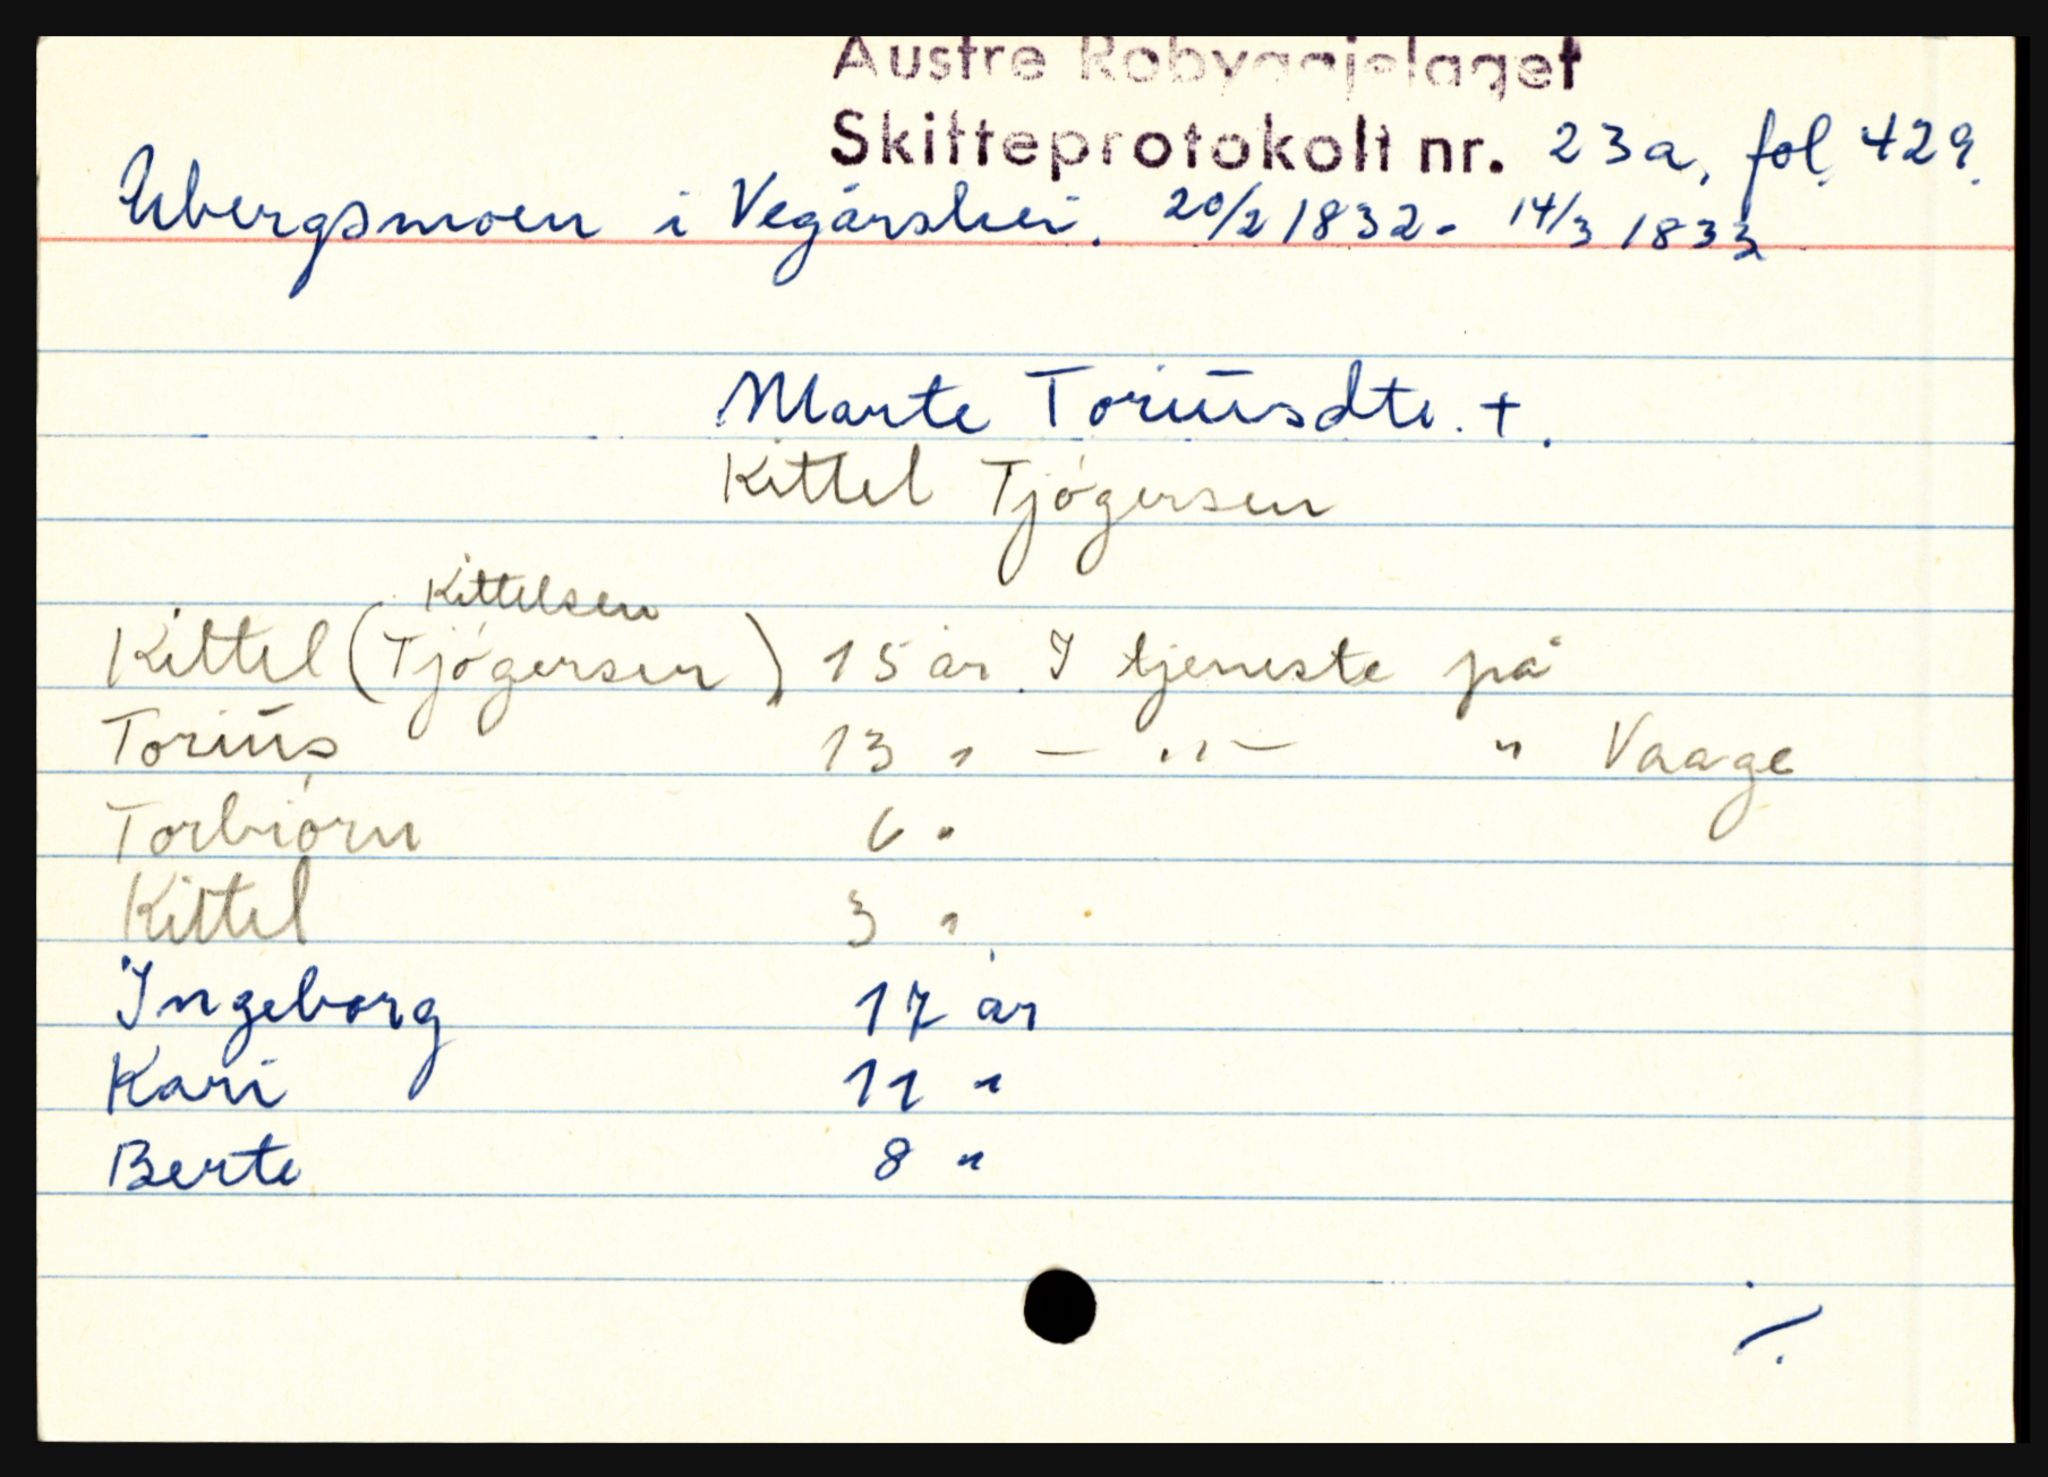 Austre Robyggjelaget
Skifteprotokoll nr. 23a, fol. 429.
Ubergsmoen i Vegårshei. 20/2 1832 - 14/3 1833
Marte Toriusdtr. +.
Kittel Tjögersen
Kittelsen
Kittel (Tjögersen) 15 år. I tjeneste på
Torius 13 " — " — " Vaage
Torbiörn 6 "
Kittel 3 "
Ingeborg 17 år
Kari 11 "
Berte 8 "
./.